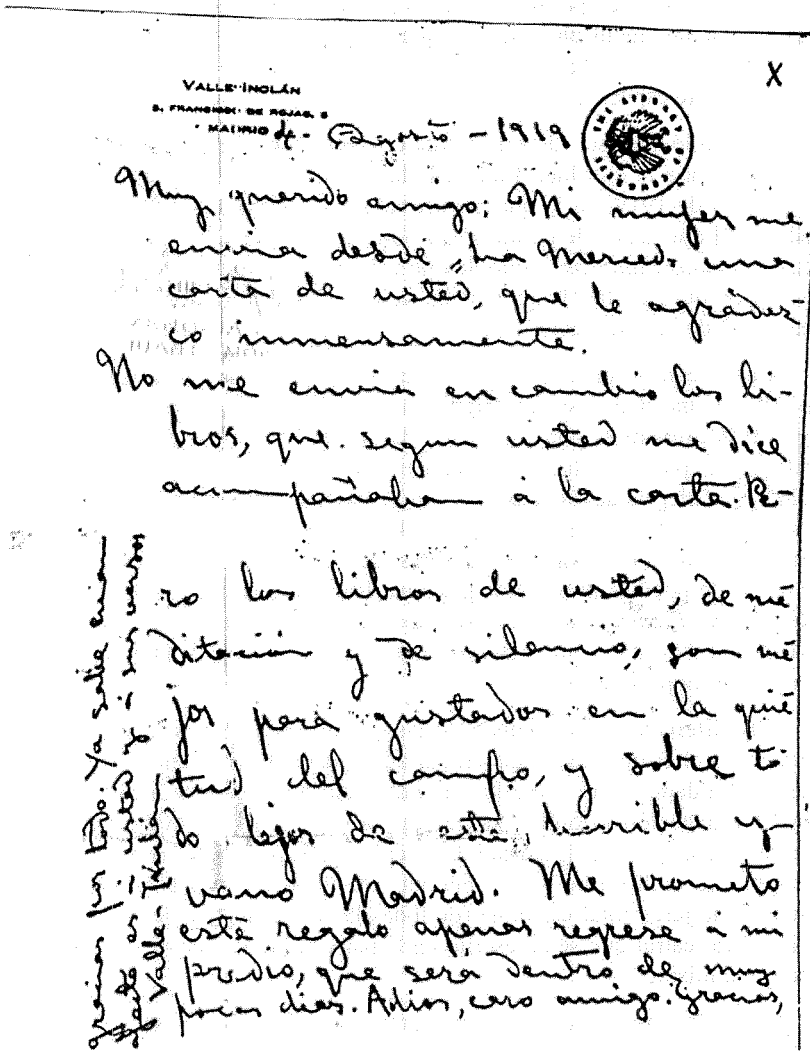 VALLE-INCLÁN
S. FRANCISCO DE ROJAS, 5
MADRID de - Agosto - 1919
X
THE LIBRARY OF CONGRESS
Muy querido amigo: Mi mujer me
envia desde "La Merced" una
carta de usted, que le agradez-
co inmensamente.
No me envia en cambio los li-
bros, que segun usted me dice
acompañaban á la carta. Pe-
ro los libros de usted, de me
ditación y de silencio, son me
jor para gustados en la quie
tud del campo, y sobre to
do lejos de este, horrible y
vano Madrid. Me prometo
este regalo apenas regrese á mi
predio, que será dentro de muy
pocos dias. Adios, caro amigo. Gracias,
gracias por todo. Ya sabe cuan
afecto es á usted y á sus versos
Valle-Inclán